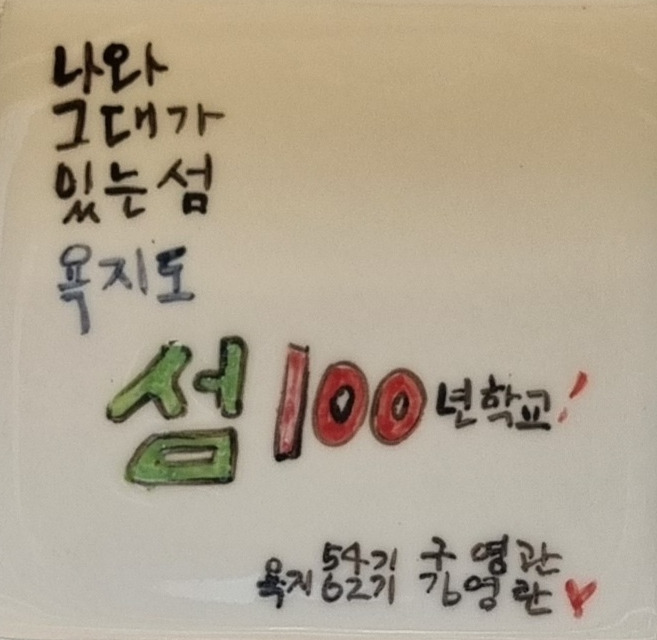 나와
그대가
있는 섬
욕지도
섬 100년학교!
욕지 54기 구영관
62기 김영란